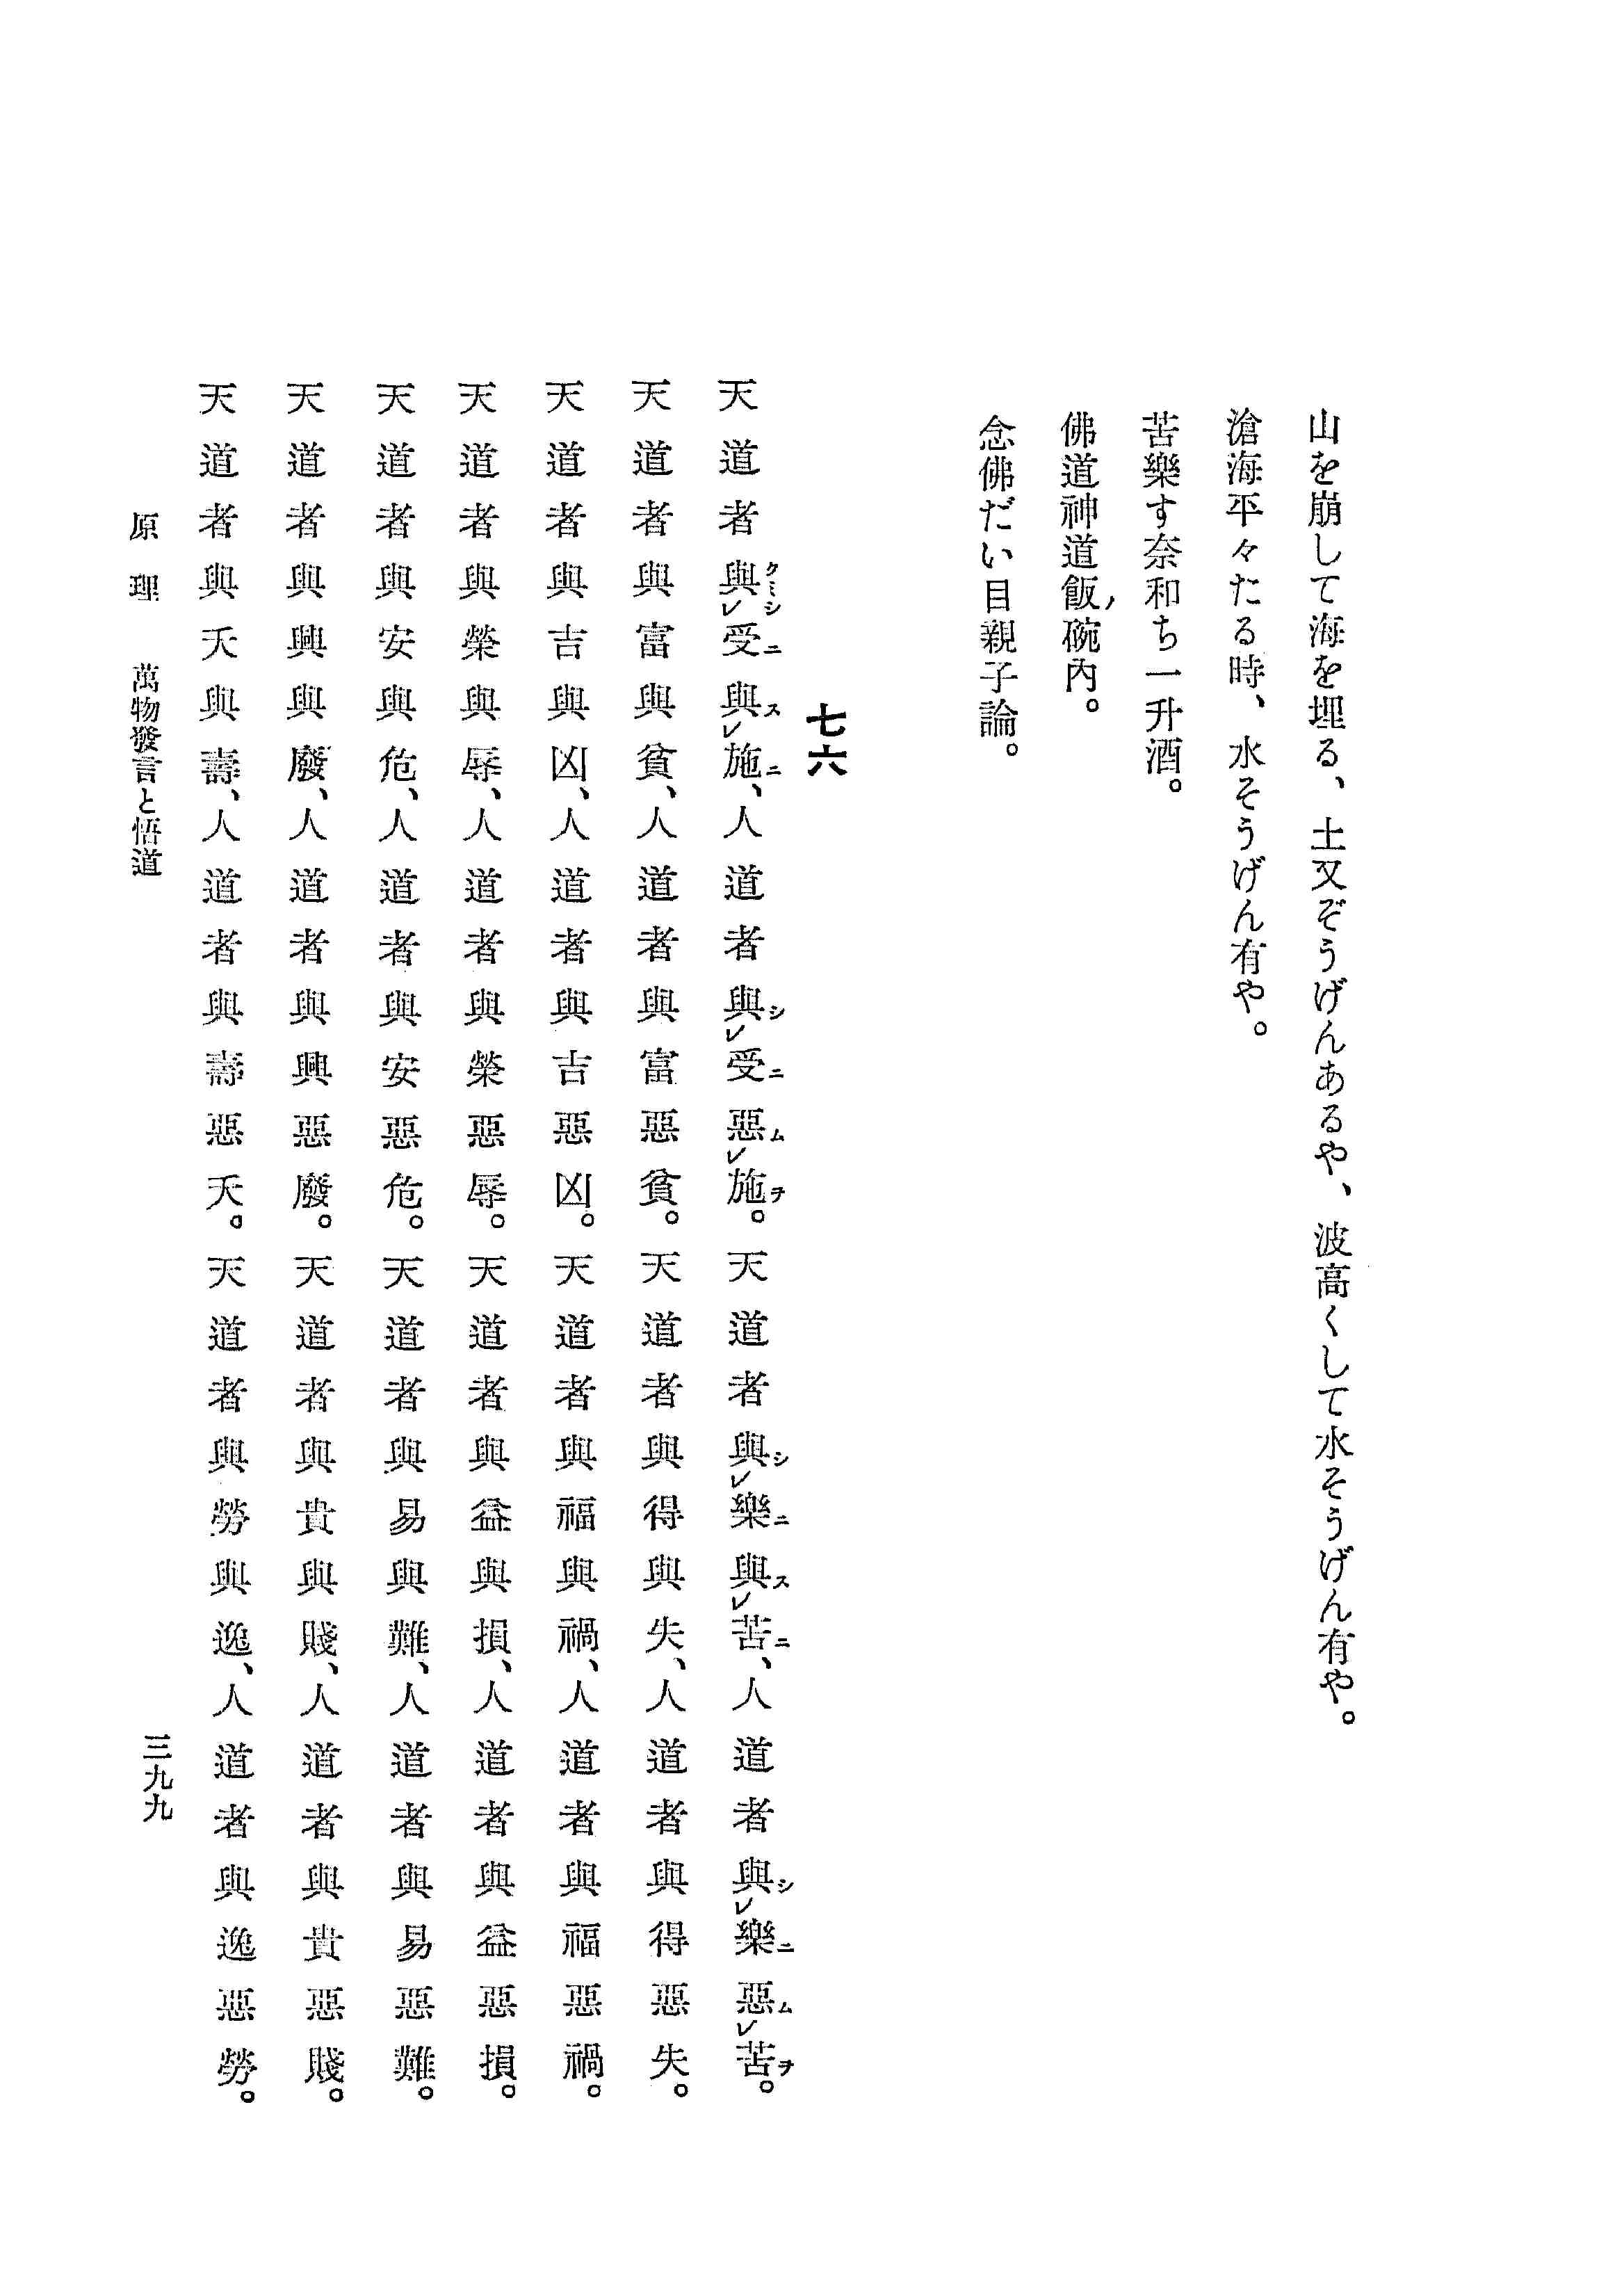 山を崩して海を埋る、土又ぞうげんあるや、波高くして水そうげん有や。
滄海平々たる時、水そうげん有や。
苦樂す奈和ち一升酒。
佛道神道飯ノ碗內。
念佛だい目親子論。
七六
天道者與クミシレ受ニ與スレ施ニ、人道者與シレ受ニ惡ムレ施ヲ。天道者與シレ樂ニ與スレ苦ニ、人道者與シレ樂ニ惡ムレ苦ヲ。
天道者與富與貧、人道者與富惡貧。天道者與得與失、人道者與得惡失。
天道者與吉與凶、人道者與吉惡凶。天道者與福與禍、人道者與福惡禍。
天道者與榮與辱、人道者與榮惡辱。天道者與益與損、人道者與益惡損。
天道者與安與危、人道者與安惡危。天道者與易與難、人道者與易惡難。
天道者與興與廢、人道者與興惡廢。天道者與貴與賤、人道者與貴惡賤。
天道者與夭與壽、人道者與壽惡夭。天道者與勞與逸、人道者與逸惡勞。
原理 萬物發言と悟道
三九九